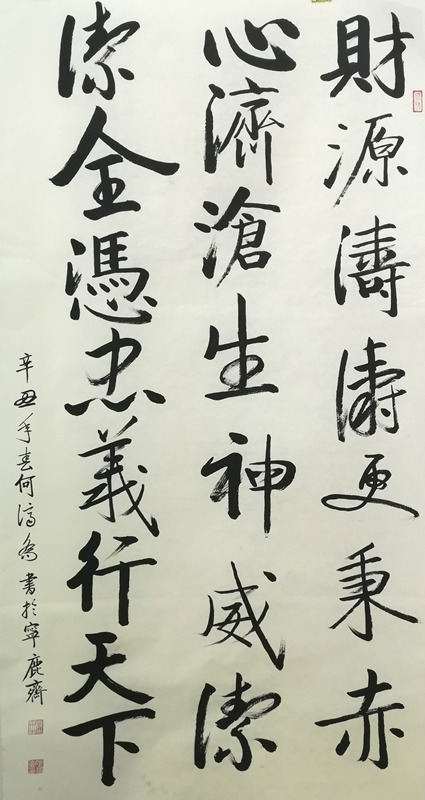 財源濤濤更秉赤
心濟滄生神威潔
潔全憑忠義行天下
辛丑年春何濤喬書於寧鹿齋